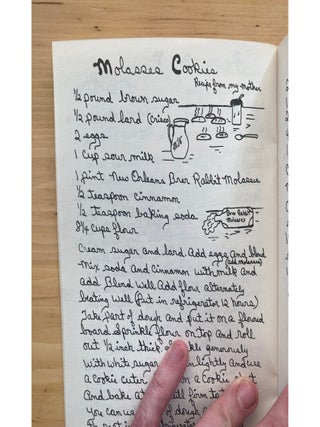 Molasses Cookies
Recipe from my mother
½ pound brown sugar
½ pound lard (crisco)
2 eggs
1 cup sour milk
Milk
1 pint New Orleans Brer Rabbit Molasses
½ teaspoon cinnamon
½ teaspoon baking soda
Brer Rabbit Molasses
8¼ cups flour
Cream sugar and lard Add eggs and blend
(add molasses)
Mix soda and cinnamon with milk and
add Blend well Add flour alternately
beating well (Put in refrigerator 12 hours)
Take part of dough and put it on a floured
board Sprinkle flour on top and roll
out ½ inch thick generously
With white sugar lightly and use
a cookie cutter on a cookie
And bake at till firm to
You can use of dough